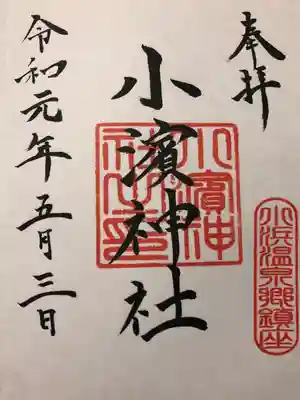 奉拝
小濱神社
令和元年五月三日
小濱神社之印
小浜温泉郷鎮座